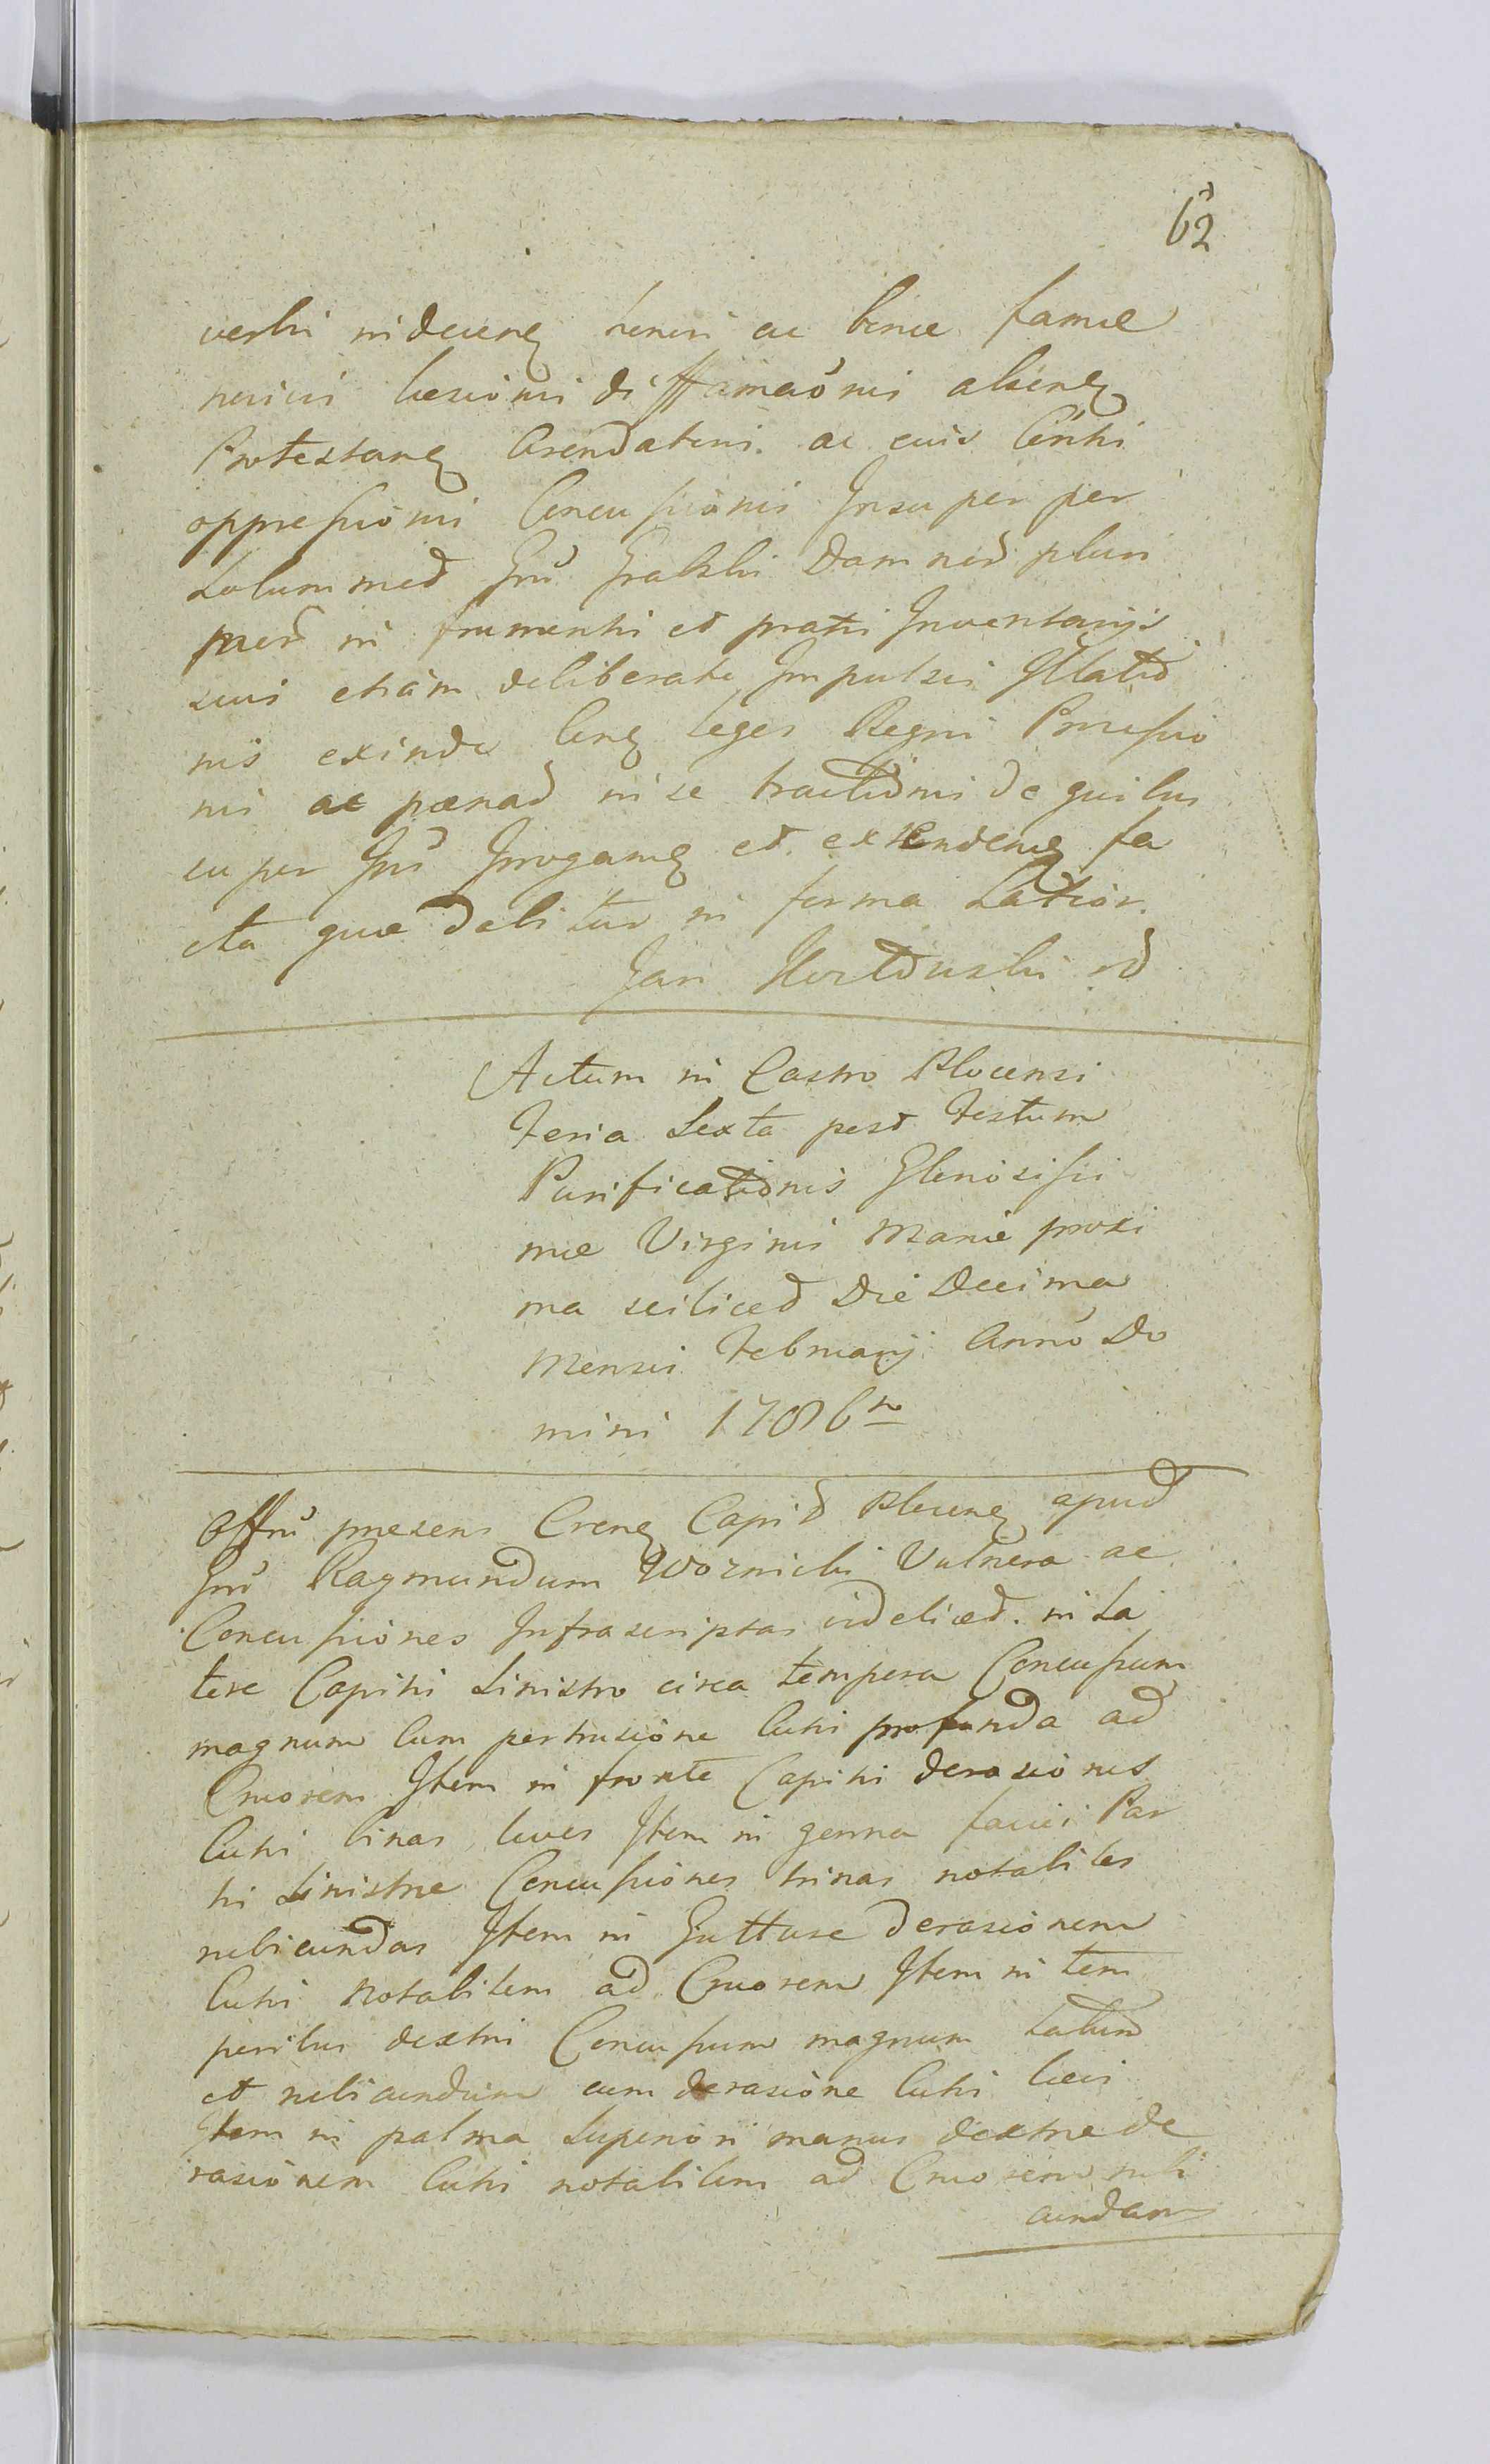 62
verbis indecene honori ac bonae famae
nocivis laesionis diffamaonis absene
Protestane Arendatoris ac ejus Conthi
oppressionis Concussionis Insuper per
totum med Gnu Gralski Damnor pluri
mor in frumentis et pratis Inventarijs
suis etiam deliberate Impulsis Illatio
nis exinde Cone leges Regni Praessio
nis ac paenar in se tractionis de quibus
super Gnu Irrogane et extendene fa
cta quae dabitur in forma Latior.
Jan
Actum in Castro Plocensi
Feria Sexta post Festum
Purificationis Gloriosissi
mae Virginis Mariae proxi
ma scilicet Die Decima
Mensis Februarij Anno Do
mini 1786to
Offm presens Crene Capit Plocene apud
Gnu Raymundum Woznicki Vulnera ac
Concussiones Infrascriptas videlicet in La
tere Capitis Sinistro circa tempora Concussum
magnum Cum pertusione Cutis profunda ad
Cruorem Item in fronte Capitis derasiones
Cutis binas leves Item in genna faciei Par
tis Sinistrae Concussiones trinas notabiles
rubicundas Item in Gutture derasionem
Cutis Notabilem ad Cruorem Item in tem
poribus dextris Concussum magnum Latum
et rubicundum cum derasione Cutis levi
Item in palma Superiori manus dextrae de
rasionem Cutis notabilem ad Cruorem rubi
cundam